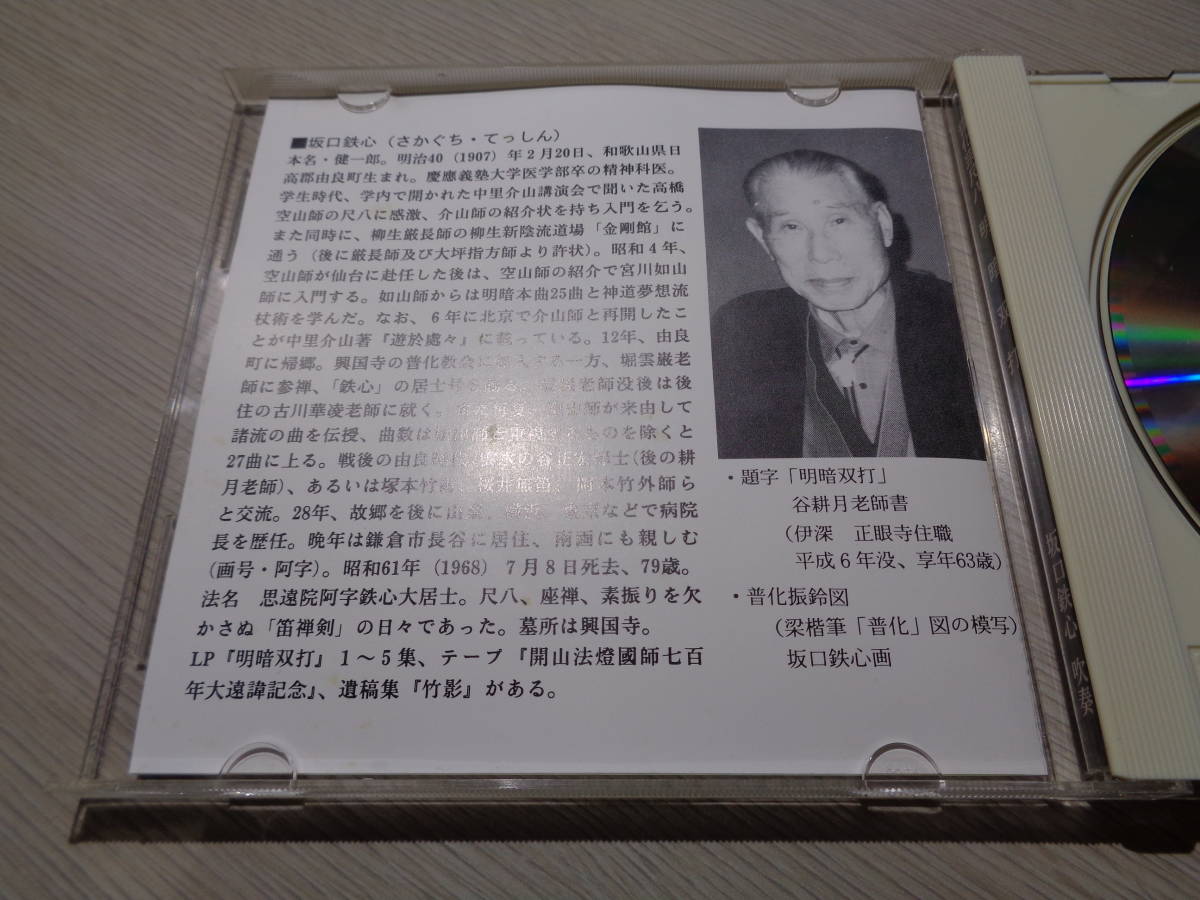 ■坂口鉄心（さかぐち・てっしん）
本名・健一郎。明治40（1907）年２月20日、和歌山県日
高郡由良町生まれ。慶應義塾大学医学部卒の精神科医。
学生時代、学内で開かれた中里介山講演会で聞いた高橋
空山師の尺八に感激、介山師の紹介状を持ち入門を乞う。
また同時に、柳生厳長師の柳生新陰流道場「金剛館」に
通う（後に厳長師及び大坪指方師より許状）。昭和４年、
空山師が仙台に赴任した後は、空山師の紹介で宮川如山
師に入門する。如山師からは明暗本曲25曲と神道夢想流
杖術を学んだ。なお、６年に北京で介山師と再開したこ
とが中里介山著『遊於處々』に載っている。12年、由良
町に帰郷。興国寺の普化教会に する一方、堀雲巌老
師に参禅、「鉄心」の居士号 老師没後は後
住の古川華凌老師に就く。 師が来由して
諸流の曲を伝授、曲数は ものを除くと
27曲に上る。戦後の由良 の谷 士(後の耕
月老師）、あるいは塚本竹 、桜井無笛、岡本竹外師ら
と交流。28年、故郷を後に などで病院
長を歴任。晩年は鎌倉市長谷に居住、南画にも親しむ
(画号・阿字)。昭和61年（1968）７月８日死去、79歳。
法名　思遠院阿字鉄心大居士。尺八、座禅、素振りを欠
かさぬ「笛禅剣」の日々であった。墓所は興国寺。
LP『明暗双打』１～５集、テープ『開山法燈國師七百
年大遠諱記念』、遺稿集『竹影』がある。
・題字「明暗双打」
谷耕月老師書
（伊深　正眼寺住職
平成６年没、享年63歳）
・普化振鈴図
（梁楷筆「普化」図の模写）
坂口鉄心画
坂口鉄心 吹奏